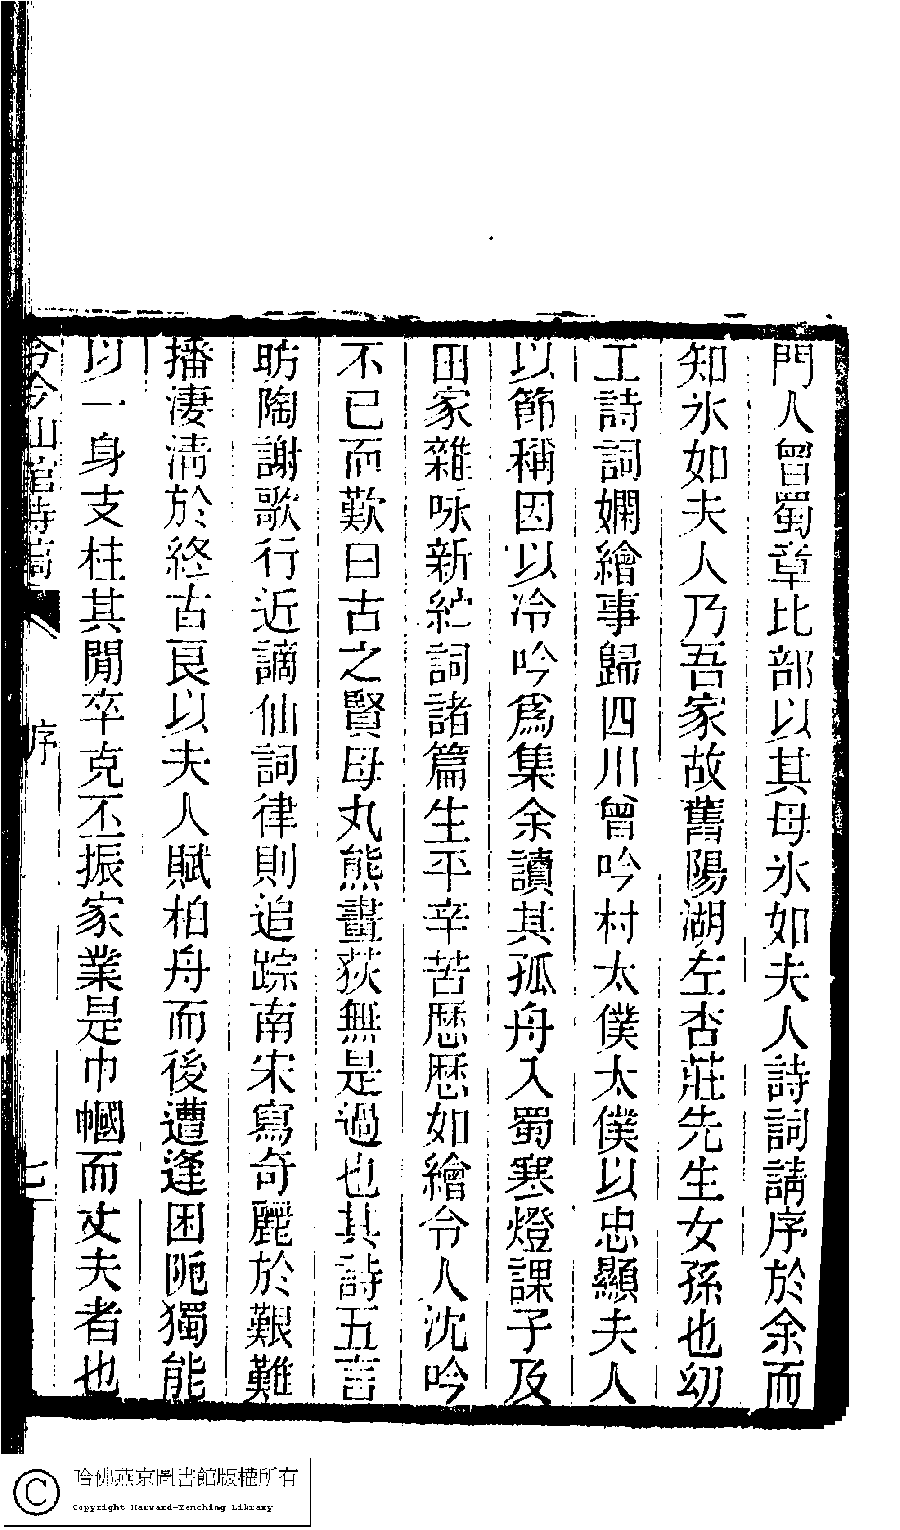 門人曾蜀章比部以其母氷如夫人詩詞請序於余而
知氷如夫人乃吾家故舊陽湖左杏莊先生女孫也幼
工詩詞嫻繪事歸四川曾吟村太僕太僕以忠顯夫人
以節稱因以冷吟爲集余讀其孤舟入蜀寒燈課子及
田家雜咏新紀詞諸篇生平辛苦歷歷如繪令人沈吟
不已而歎曰古之賢母丸熊畫荻無是過也其詩五言
昉陶謝歌行近謫仙詞律則追踪南宋寫奇麗於艱難
播淒淸於終古良以夫人賦柏舟而後遭逢困阨獨能
以一身支柱其閒卒克丕振家業是巾幗而丈夫者也
冷吟仙館詩稿 序 七
哈佛燕京圖書館版權所有
Copyright Harvard-Yenching Library